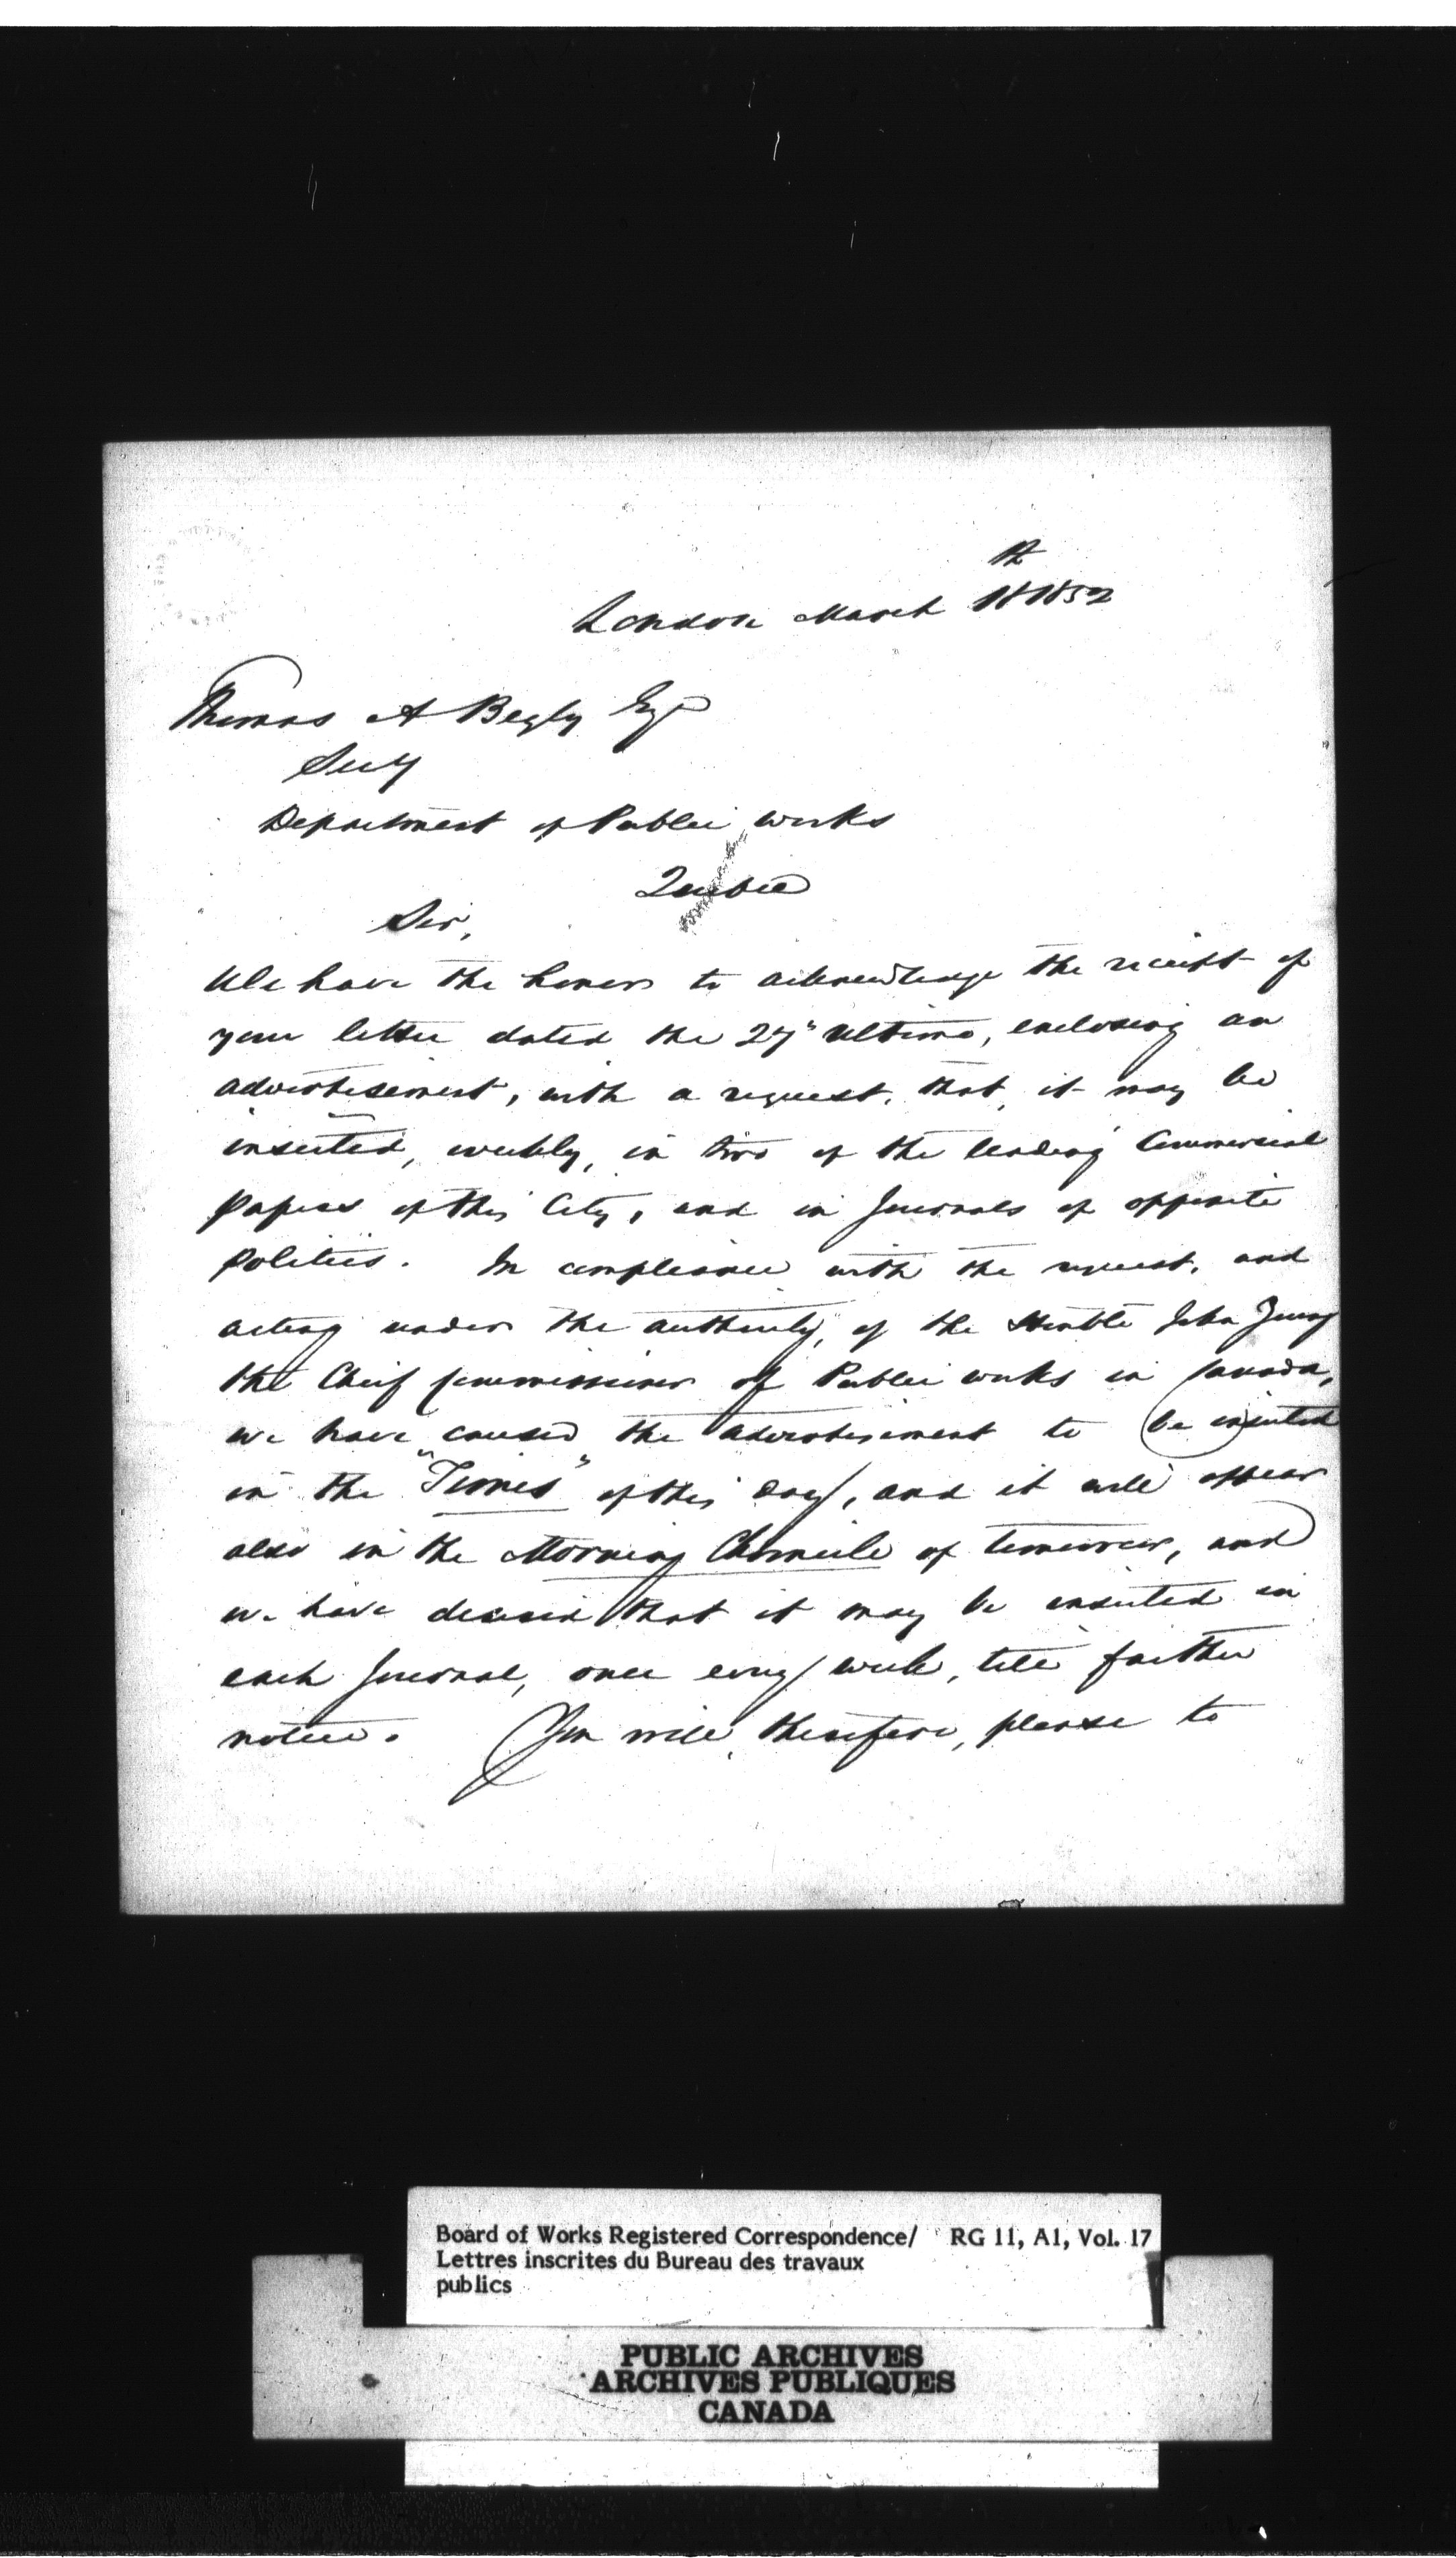 London March 18th 1852
Thomas A Begly Esqr
Secy
Department of Public works
Quebec
Sir,
We have the honor to acknowledge the receipt of
your letter dated the 27" Ultimo, enclosing an
advertisement, with a request, that, it may be
inserted, weekly, in two of the leading Commercial
papers of this City, and in Journals of opposite
politics. In compliance with the request, and
acting under the authority, of the Honble John Young
the Chief Commissioner of Public works in Canada,
we have caused the advertisement to be inserted
in the "Times" of this day, and it will appear
also in the Morning Chronicle of tomorrow, and
we have desired that it may be inserted in
each Journal, once every week, till further
notice. You will, therefore, please to
Board of Works Registered Correspondence/ RG 11, A1, Vol. 17
Lettres inscrites du Bureau des travaux
publics
PUBLIC ARCHIVES
ARCHIVES PUBLIQUES
CANADA